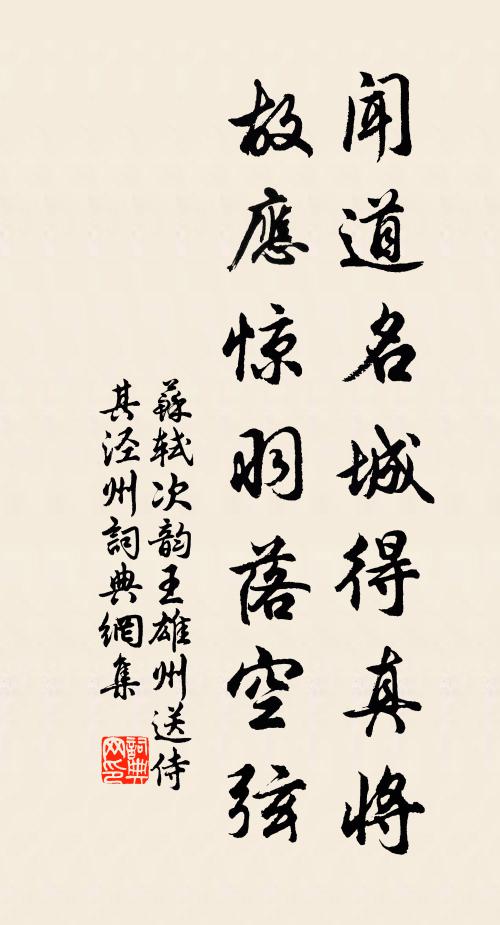 聞道名城得真將
故應惊羽落空弦
蘇軾次韵王雄州送侍
其涇州詞典網集
詞典网印